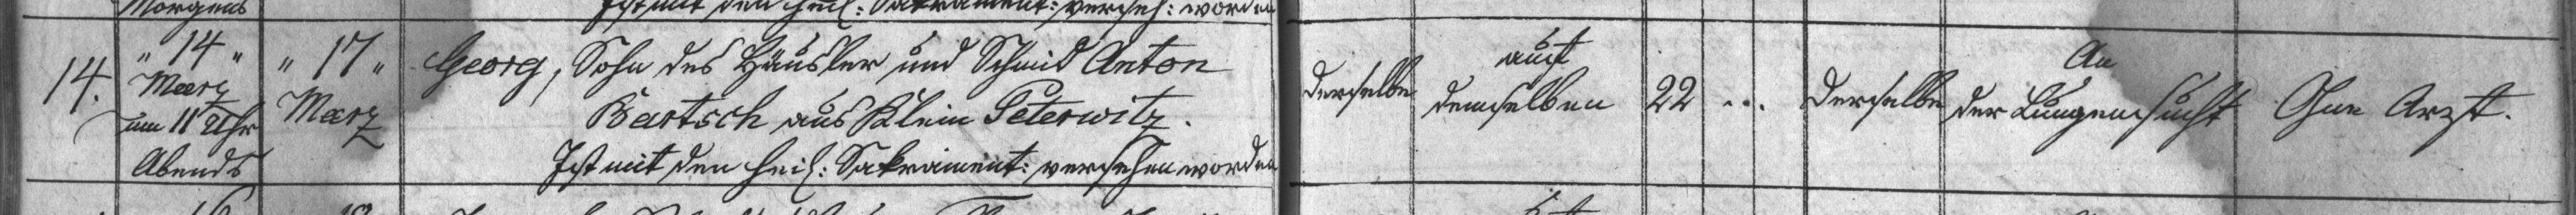 Morgens
Ist mit den heil: Sakrament: verseh: worden
14.
" 14 "
Maerz
um 11 Uhr
Abends
" 17 "
Maerz
Georg, Sohn des Häusler und Schmid Anton
Bartsch aus Klein Peterwitz.
Ist mit den heil: Sakrament: versehen worden
derselbe
auf
demselben
22
...
derselbe
An
der Lungensucht
Ohne Arzt.